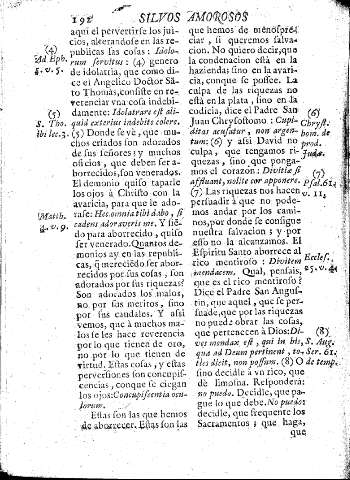 192 SILVOS AMOROSOS
aqui el pervertirse los jui-
cios, alterandose en las re-
publicas las cosas: Idolo-
rum servitus: (4) genero
de idolatria, que como di-
ce el Angelico Doctor Sã-
to Thomàs, consiste en re-
verenciar vna cosa indebi-
damente: Idolatrare est ali-
quid exterius indebite colere.
(5) Donde se vè, que mu-
chos criados son adorados
de sus señores y muchos
oficios, que deben ser a-
borrecidos, son venerados.
El demonio quiso taparle
los ojos à Christo con la
avaricia, para que le ado-
rase: Hæc omnia tibi dabo, si
cadens adoraveris me. Y sié-
do para aborrecido, quiso
ser venerado. Quantos de-
monios ay en las republi-
cas, q̃ merecièdo ser abor-
recidos por sus cosas, son
adorados por sus riquezas?
Son adorados los malos,
no por sus meritos, sino
por sus caudales. Y assi
vemos, que à muchos ma-
los se les hace reverencia
por lo que tienen de oro,
no por lo que tienen de
virtud. Estas cosas, y estas
perversiones son concupis-
cencias, conque se ciegan
los ojos: Concupiscentia ocu-
lorum.
Estas son las que hemos
de aborrecer. Estas son las
(4)
Ad Eph.
5. v. 5.
(5)
S. Tho.
ibi lec. 3.
Matth.
4. v. 9.
que hemos de menospre-
ciar, si queremos salva-
cion. No quiero decir, que
la condenacion està en la
hazienda; sino en la avari-
cia, conque se possee. La
culpa de las riquezas no
està en la plata, sino en la
codicia, dice el Padre San
Juan Chrysostomo: Cupi-
ditas accusatur, non argen-
tum: (6) y assi David no
culpa, que tengamos ri-
quezas, sino, que ponga-
mos el corazon: Divitiæ si
affluant, nolite cor apponere.
(7) Las riquezas nos hacen
persuadir à que no pode-
mos andar por los cami-
nos, por donde se consigue
nuestra salvacion; y por
esso no la alcanzamos. El
Espiritu Santo aborrece al
rico mentiroso: Divitem
mendacem. Qual, pensais,
que es el rico mentiroso?
Dice el Padre San Augus-
tin, que aquel, que se per-
suade, que por las riquezas
no puede obrar las cosas,
que pertenecen à Dios: Di-
ves mendax est, qui in his,
qua ad Deum pertinent,
dicit, non possum. (8) O
sino decidle à vn rico, que
dè limosna. Responderà:
no puedo. Decidle, que pa-
gue lo que debe. No puedo:
decidle, que frequente los
Sacramentos; que haga,
que
(6)
Chryst.
hom. de
prod.
Judæ.
(7)
Psal. 61.
v. 11.
Eccles.
25. v. 4.
(8)
S. Aug.
to Ser. 61.
de temp.